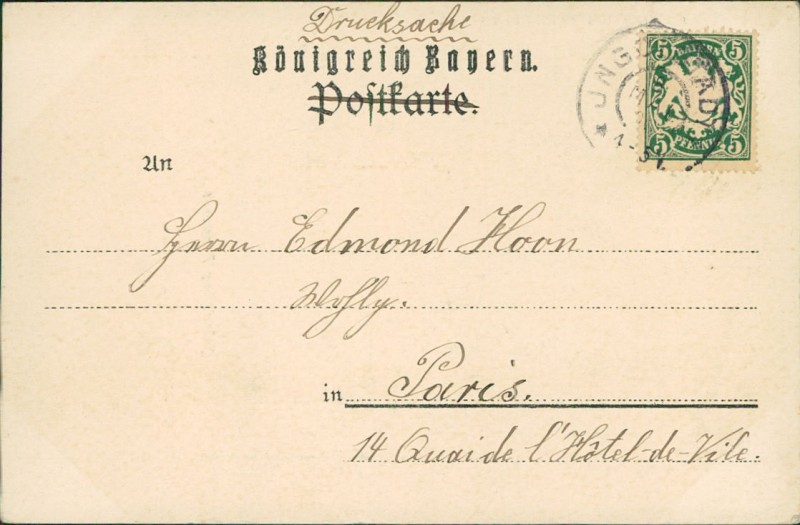 Drucksache
Königreich Bayern.
Postkarte.
5 BAYERN 5
5 PFENNIG 5
An
Herrn Edmond Hoon
Wohlg.
in Paris.
14 Quai de l'Hôtel-de-Vile.